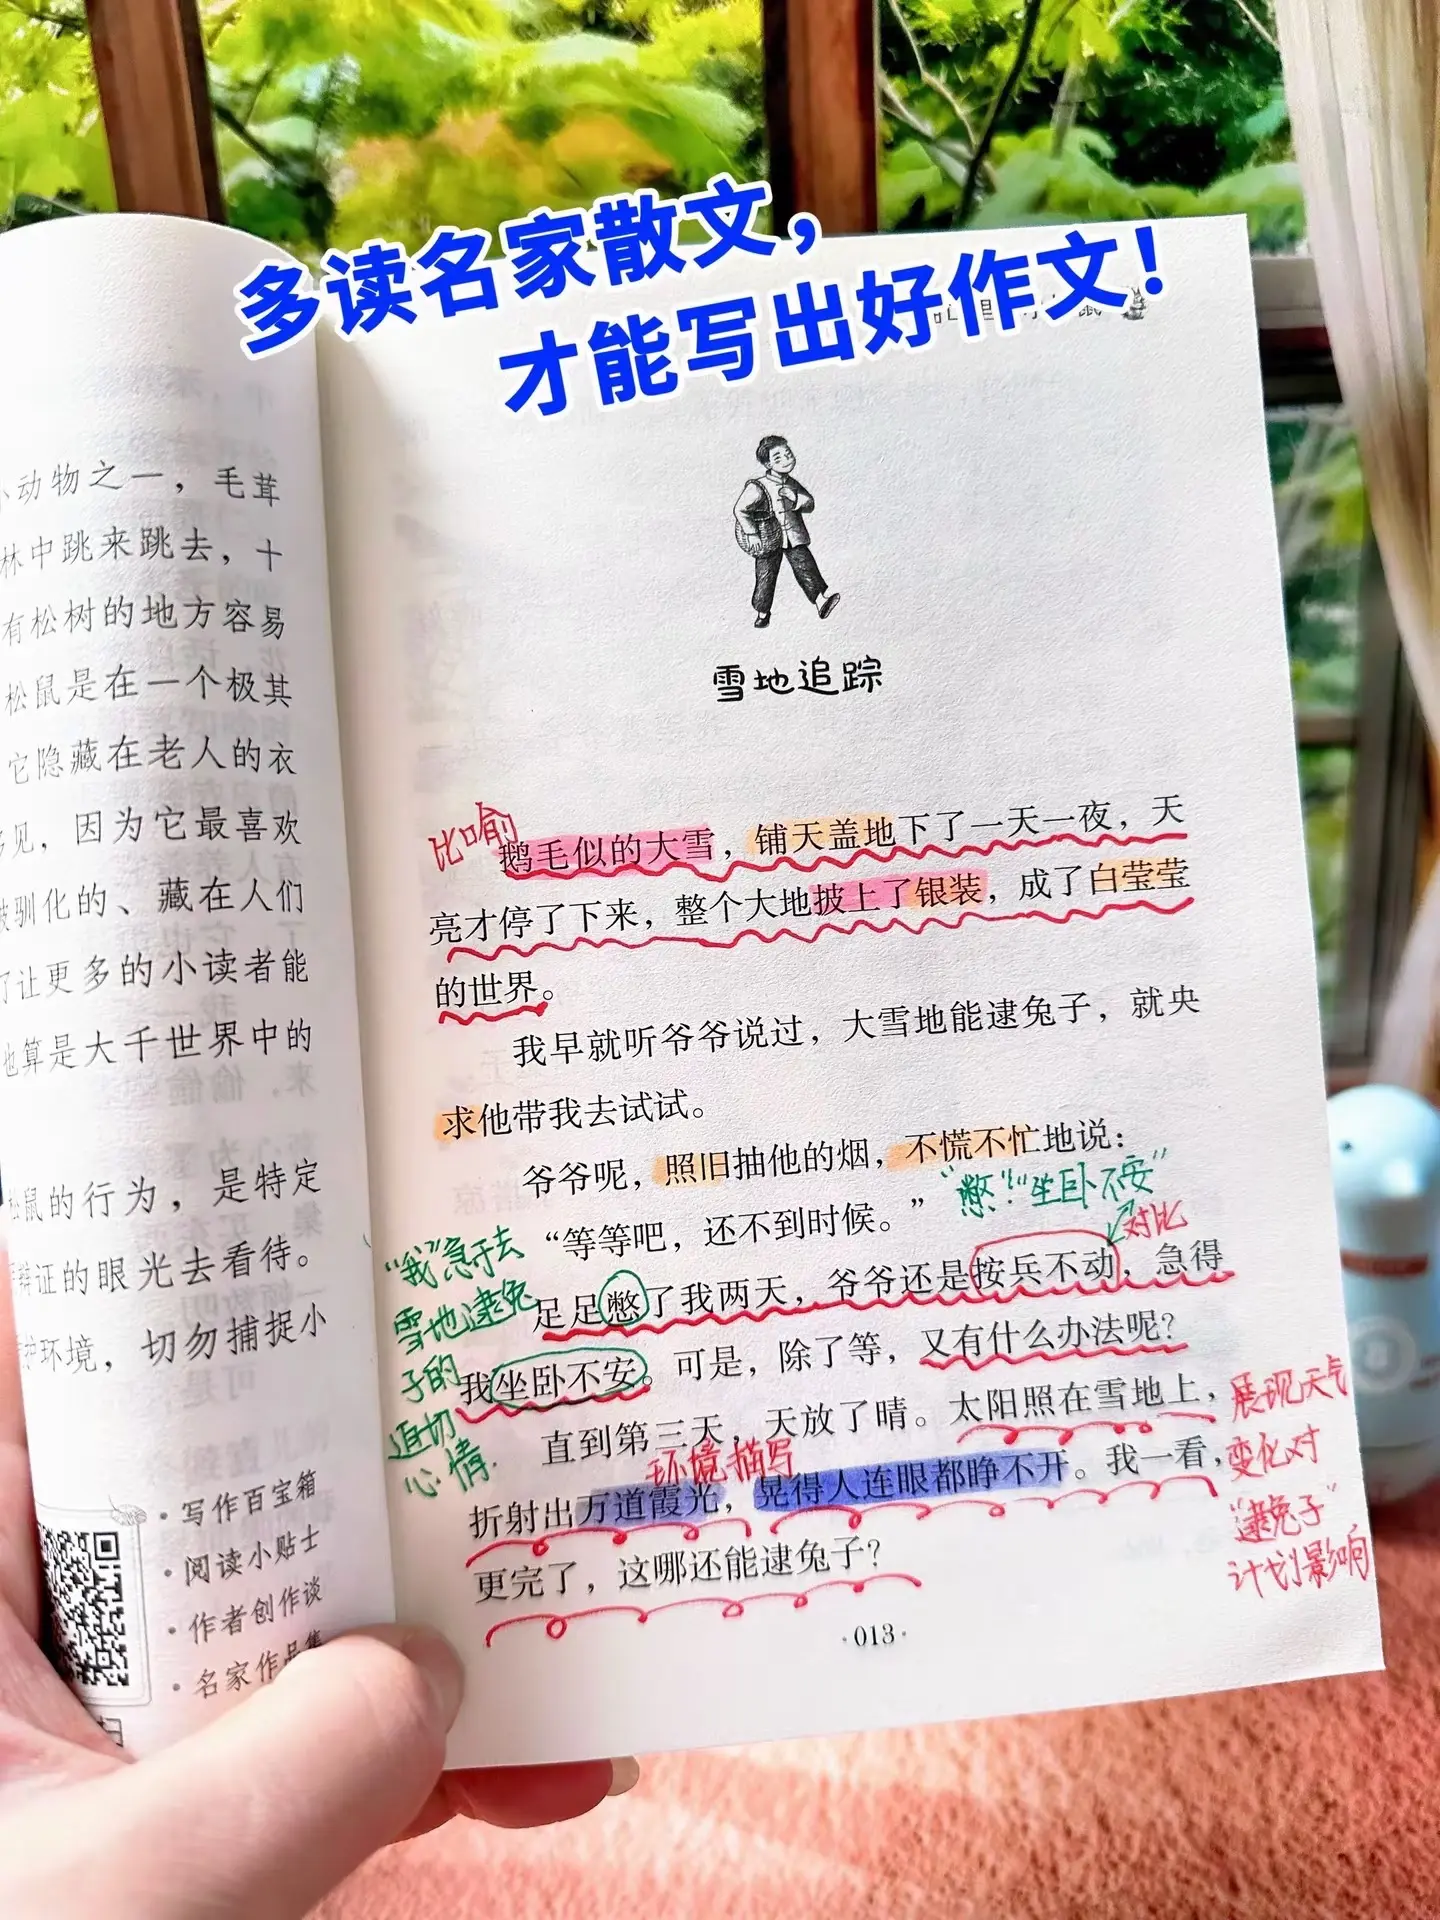 多读名家散文，
才能写出好作文！
小动物之一，毛茸
林中跳来跳去，十
有松树的地方容易
松鼠是在一个极其
它隐藏在老人的衣
多见，因为它最喜欢
被驯化的、藏在人们
了让更多的小读者能
也算是大千世界中的
松鼠的行为，是特定
辩证的眼光去看待。
护环境，切勿捕捉小
• 写作百宝箱
• 阅读小贴士
• 作者创作谈
• 名家作品集
扫
雪地追踪
比喻
鹅毛似的大雪，铺天盖地下了一天一夜，天
亮才停了下来，整个大地披上了银装，成了白莹莹
的世界。
我早就听爷爷说过，大雪地能逮兔子，就央
求他带我去试试。
爷爷呢，照旧抽他的烟，不慌不忙地说：
“等等吧，还不到时候。”
“憋”“坐卧不安”
对比
足足憋了我两天，爷爷还是按兵不动，急得
我坐卧不安。可是，除了等，又有什么办法呢？
“我”急于去
雪地逮兔
子的
迫切
心情.
直到第三天，天放了晴。太阳照在雪地上，
环境描写
折射出万道霞光，晃得人连眼都睁不开。我一看，
更完了，这哪还能逮兔子？
展现天气
变化对
“逮兔子”
计划影响
·013·